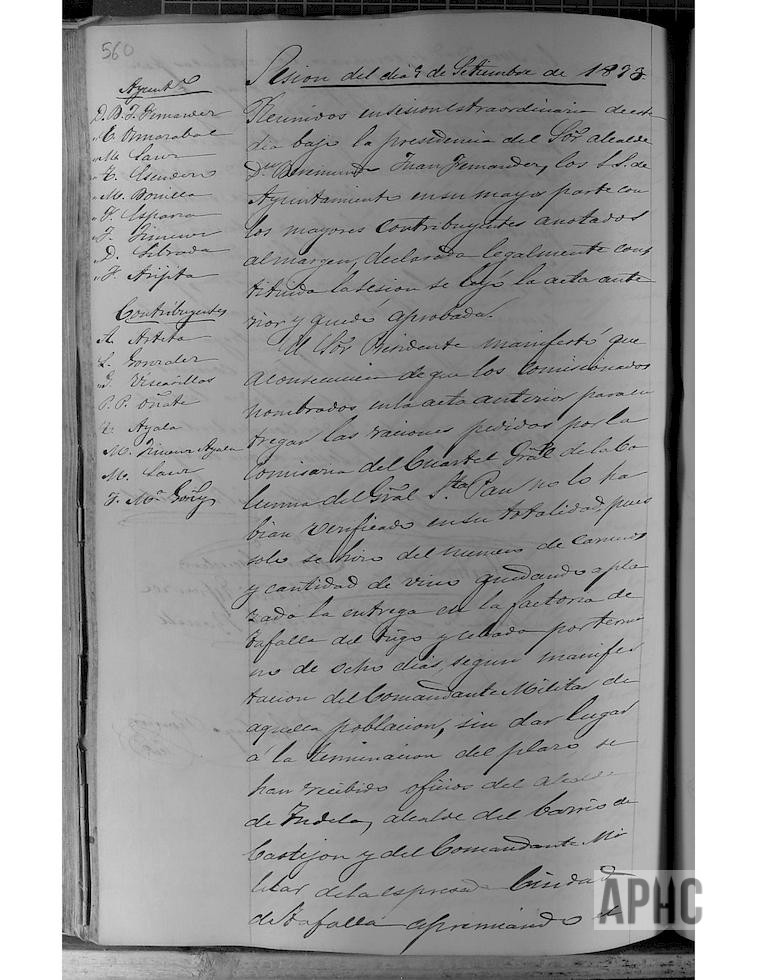 560
Sesion del dia 9 de Setiembre de 1873
Ayunt.º
D. B. J. Fernandez
" M. Sanz
" M. Bonilla
" F. Esparza
" F. Jimenez
D. Librada
" F. Arijita
Contribuyentes
A. Arteta
L. Gonzalez
P. P. Oñate
Ayala
M. Jimenez Ayala
M. Sanz
F. M.ª Goñy
Reunidos en sesion estraordinaria de este
dia bajo la presidencia del Sor alcalde
Dn Juan Fernandez, los S.S. de
Ayuntamiento en su mayor parte con
los mayores contribuyentes anotados
al margen, declarada legalmente cons
tituida la sesion se leyó la acta ante
rior y quedó aprobada.
El Sor Presidente manifestó que
a consecuencia de que los comisionados
nombrados en la acta anterior para en
tregar las raciones pedidas por la
Comisaria del Cuartel Gral de la Co
lumna del Gral Sta Pau no lo ha
bian verificado en su totalidad, pues
solo se hizo del numero de carneros
y cantidad de vino quedando apla
zada la entrega en la factoria de
Tafalla del trigo y cebada por termi
no de ocho dias, segun manifes
tacion del Comandante Militar de
aquella poblacion, sin dar lugar
á la terminacion del plazo se
han recibido oficios del alcalde
de Tudela, alcalde del barrio de
Castejon y del Comandante Mi
litar de la espresada Ciudad
de Tafalla apremiando
APHC